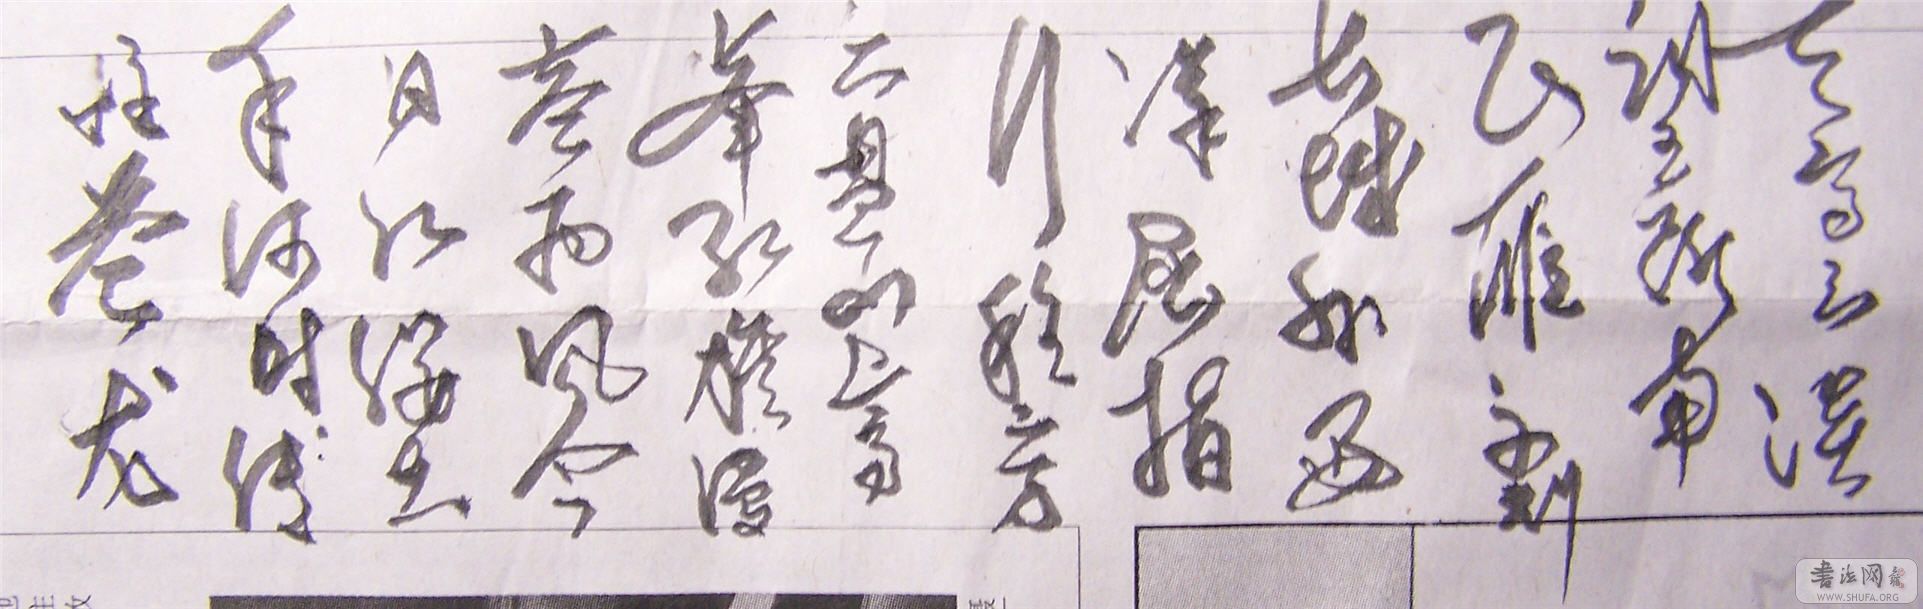 天高云淡
望断南
飞雁不到
长城非好
汉屈指
行程二万
六盘山上高
峰红旗漫
卷西风今
日长缨在
手何时缚
住苍龙
书法网
WWW.SHUFA.ORG